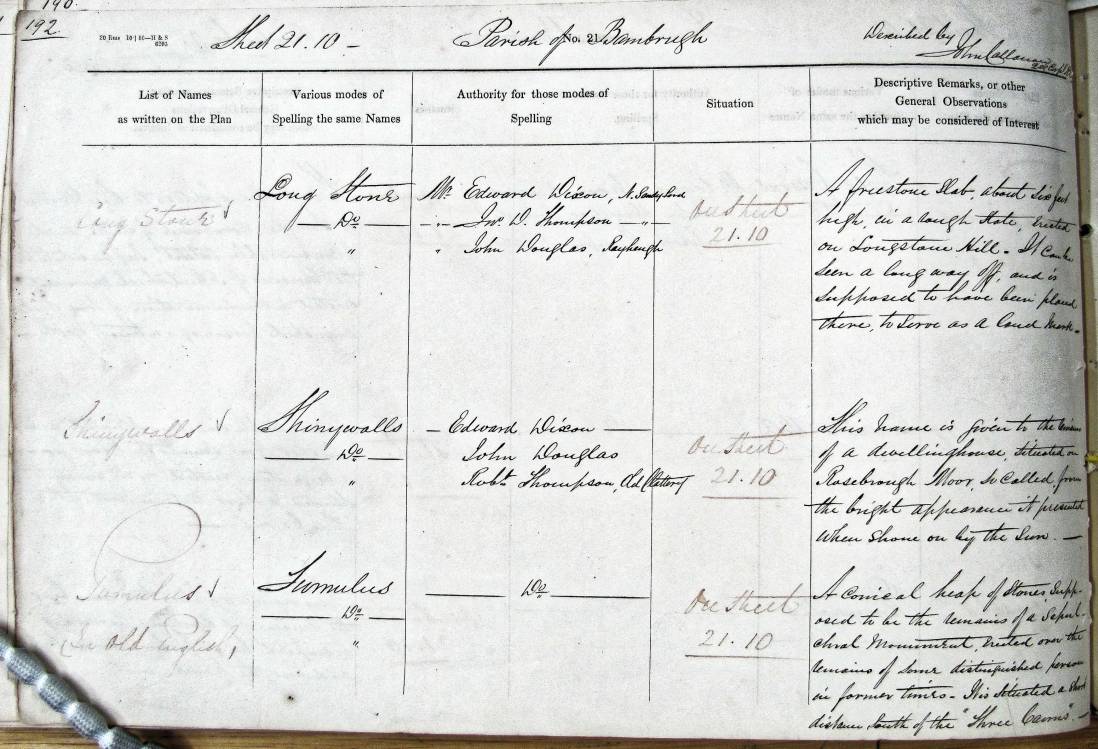 190
192
20 Rms 10|60—H & S
6203
Sheet 21.10 –
Parish of Bambrugh
No. 21
Described by
John
List of Names
as written on the Plan
Various modes of
Spelling the same Names
Authority for those modes of
Spelling
Situation
Descriptive Remarks, or other
General Observations
which may be considered of Interest
Long Stone
Long Stone
Do
"
Mr. Edward Dixon, N. Sandyford
" Jno. D. Thompson "
" John Douglas, Rayheugh
On Sheet
21.10
A freestone Slab, about Six feet
high, in a rough State, Erected
on Longstone Hill – It can be
Seen a long way off, and is
Supposed to have been placed
there, to Serve as a Land Mark –
Shinywalls
Shinywalls
Do
"
Edward Dixon
John Douglas
Robt. Thompson,
On Sheet
21.10
This Name is given to the
of a dwellinghouse, Situated on
Rosebrough Moor, So Called, from
the bright appearance it presented
When Shone on by the Sun. —
Tumulus
In Old English,
Tumulus
Do
"
Do
On Sheet
21.10
A Conical heap of Stones, Supp
osed to be the remains of a Sepul
chral Monument, Erected over the
remains of Some distinguished person
in former times – It is Situated a short
distance South of the "Three Cairns". —